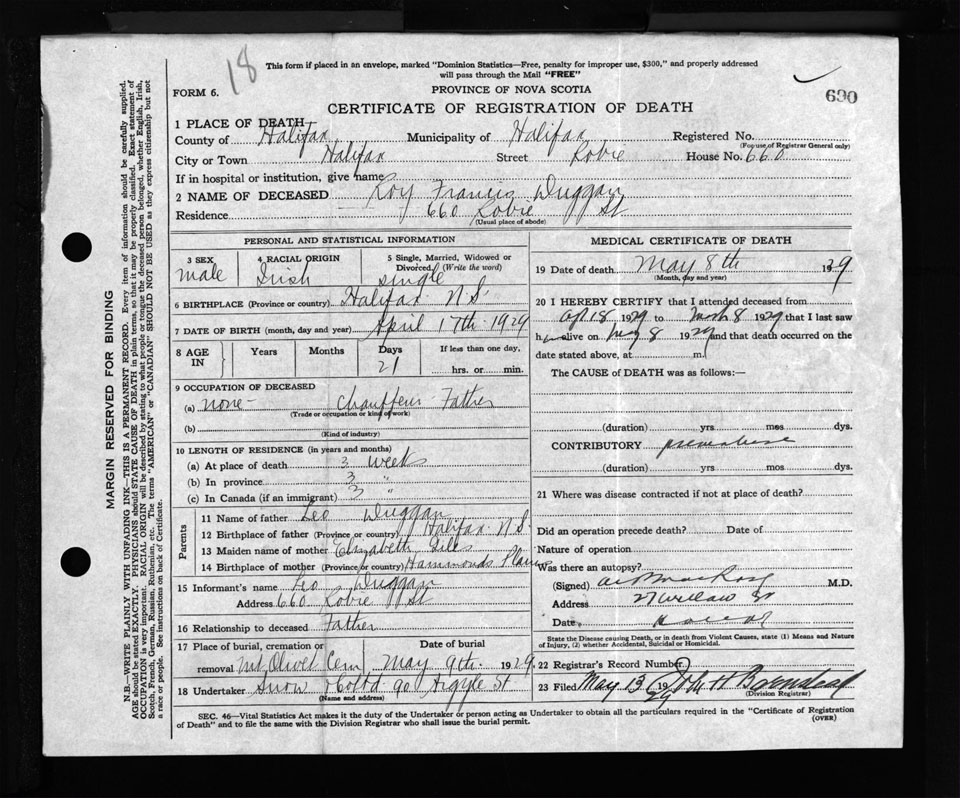 18
This form if placed in an envelope, marked "Dominion Statistics—Free, penalty for improper use, $300," and properly addressed
will pass through the Mail "FREE"
690
FORM 6.
PROVINCE OF NOVA SCOTIA
CERTIFICATE OF REGISTRATION OF DEATH
1 PLACE OF DEATH
County of Halifax Municipality of Halifax Registered No.
(For use of Registrar General only)
City or Town Halifax Street Robie House No. 660
If in hospital or institution, give name
2 NAME OF DECEASED Roy Francis Duggan
Residence 660 Robie St
(Usual place of abode)
PERSONAL AND STATISTICAL INFORMATION
3 SEX 4 RACIAL ORIGIN 5 Single, Married, Widowed or
Divorced. (Write the word)
male Irish single
6 BIRTHPLACE (Province or country) Halifax N.S.
7 DATE OF BIRTH (month, day and year) April 17th 1929
8 AGE IN Years Months Days If less than one day,
21 hrs. or min.
9 OCCUPATION OF DECEASED
(a) none - Chauffeur Father
(Trade or occupation or kind of work)
(b)
(Kind of industry)
10 LENGTH OF RESIDENCE (in years and months)
(a) At place of death 3 weeks
(b) In province 3 "
(c) In Canada (if an immigrant) 3 "
Parents
11 Name of father Leo Duggan
12 Birthplace of father (Province or country) Halifax N.S.
13 Maiden name of mother Elizabeth
14 Birthplace of mother (Province or country) Hammonds Plains
15 Informant's name Leo Duggan
Address 660 Robie St
16 Relationship to deceased Father
17 Place of burial, cremation or Date of burial
removal Mt Olivet Cem May 9th 1929
18 Undertaker Snow & Co Ltd 90 Argyle St
(Name and address)
MEDICAL CERTIFICATE OF DEATH
19 Date of death May 8th 1929
(Month, day and year)
20 I HEREBY CERTIFY that I attended deceased from
Apl 18 1929 to 8 1929 that I last saw
h alive on May 8 1929 and that death occurred on the
date stated above, at m.
The CAUSE of DEATH was as follows:—
(duration) yrs mos dys.
CONTRIBUTORY premature
(duration) yrs mos dys.
21 Where was disease contracted if not at place of death?
Did an operation precede death? Date of
Nature of operation
Was there an autopsy?
(Signed) M.D.
Address Willow St
Date
State the Disease causing Death, or in death from Violent Causes, state (1) Means and Nature
of Injury, (2) whether Accidental, Suicidal or Homicidal.
22 Registrar's Record Number
23 Filed May 13 1929
(Division Registrar)
SEC. 46—Vital Statistics Act makes it the duty of the Undertaker or person acting as Undertaker to obtain all the particulars required in the "Certificate of Registration
of Death" and to file the same with the Division Registrar who shall issue the burial permit.
(OVER)
MARGIN RESERVED FOR BINDING
N.B.—WRITE PLAINLY WITH UNFADING INK—THIS IS A PERMANENT RECORD. Every item of information should be carefully supplied.
AGE should be stated EXACTLY. PHYSICIANS should STATE CAUSE OF DEATH in plain terms, so that it may be properly classified. Exact statement of
OCCUPATION is very important. RACIAL ORIGIN will be described by stating to what people or tongue the deceased person belonged, whether English, Irish,
Scotch, French, German, Russian, Ruthenian, etc. The terms "AMERICAN" or "CANADIAN" SHOULD NOT BE USED as they express citizenship but not
a race or people. See instructions on back of Certificate.